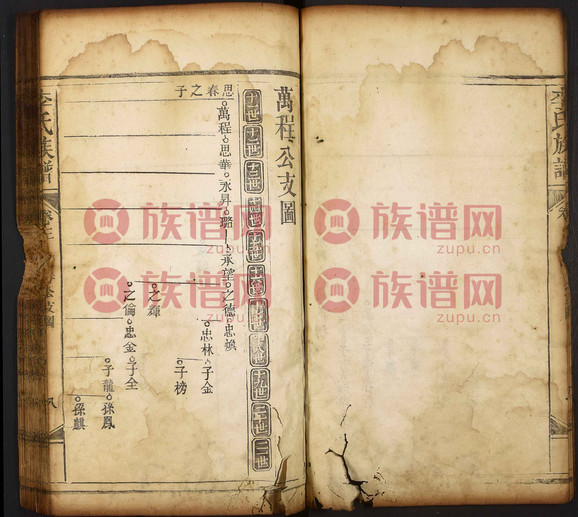 萬程公支圖
十一世
十二世
十三世
十四世
十五世
十六世
十七世
十八世
十九世
二十世
二一世
思春之子
萬程 思華 永昇 璐 承望 之德 忠煥
忠林 子金
子榜
之輝
之倫 忠金 子全
子龍 孫鳳
孫麒
李氏族譜
支圖
八
李氏族譜
族谱网
zupu.cn
族谱网
zupu.cn
族谱网
zupu.cn
族谱网
zupu.cn